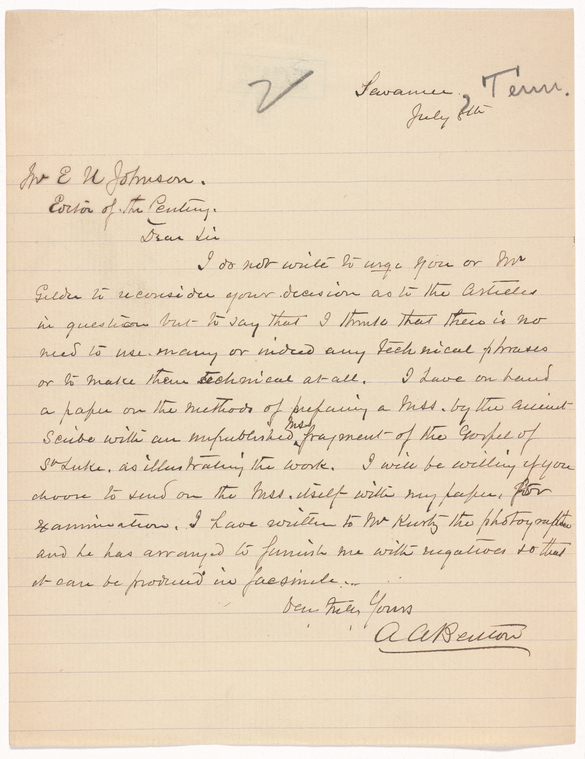 Sewanee, Tenn.
July 8th
Mr E U Johnson.
Editor of the Century.
Dear Sir
I do not write to urge you or Mr
Gilder to reconsider your decision as to the Articles
in question but to say that I think that there is no
need to use many or indeed any technical phrases
or to make them technical at all. I have on hand
a paper on the methods of preparing a Mss. by the ancient
Scribe with an unpublished Mss fragment of the Gospel of
St Luke. as illustrating the work. I will be willing if you
choose to send on the Mss. itself with my paper, for
examination. I have written to Mr Kurtz the photographer
and he has arranged to furnish me with negatives so that
it can be produced in facsimile.
Very truly Yours
A A Benton